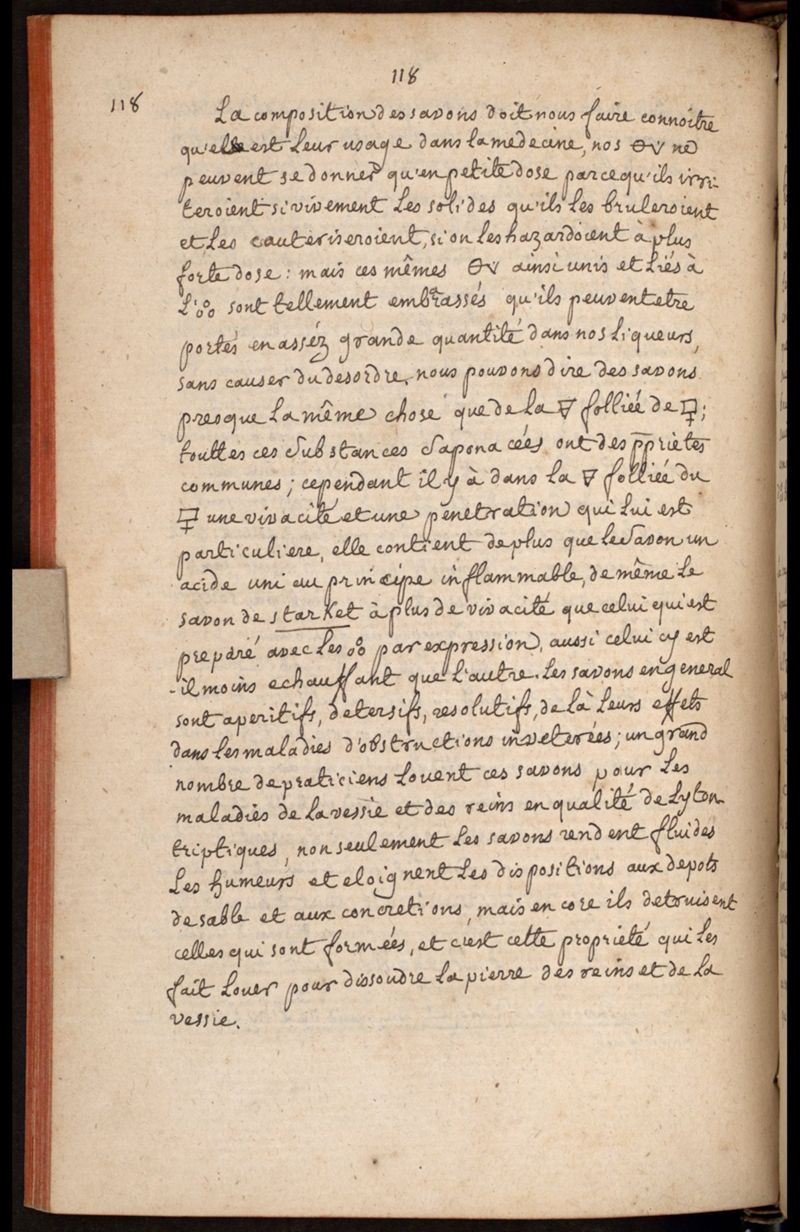 118
118
La composition des savons doit nous faire connoitre
qu'elle est Leur usage dans la medecine, nos 🜔🜄 ne
peuvent se donner qu'en petite dose parcequ'ils irri-
teroient si vivement Les solides qu'ils Les bruleroient
et Les cauteriseroient, si on Les hazardoient à plus
forte dose : mais ces mêmes 🜔🜄 ainsi unis et Liés à
L'oo° sont tellement embrassés qu'ils peuvent etre
portés en asséz grande quantité dans nos Liqueurs,
sans causer du desordre, nous pouvons dire des savons
presque La même chose que de La 🜃 folliée de 🜿;
touttes ces Substances Saponacées ont des pprietés
communes; cependant il y à dans La 🜃 folliée du
🜿 une vivacité et une penetration qui Lui est
particuliere, elle contient de plus que Le Savon un
acide uni au principe inflammable, de même Le
savon de starket à plus de vivacité que celui qui est
preparé avec Les oo° par expression, aussi celui cy est
-il moins echauffant que L'autre. Les savons en general
sont aperitifs, detersifs, resolutifs, de Là Leurs effets
dans Les maladies d'obstructions inveterées; un grand
nombre de praticiens Louent ces savons pour Les
maladies de La vessie et des reins en qualité de Lyton-
triptiques, non seulement Les savons rendent fluides
Les humeurs et eloignent Les dispositions aux depots
de sable et aux concretions, mais encore ils detruisent
celles qui sont formées, et c'est cette proprieté qui Les
fait Louer pour dissoudre La pierre des reins et de La
vessie.